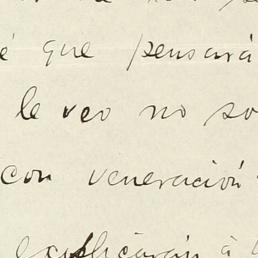 que pensará
le veo no so
con veneración
explicarán á